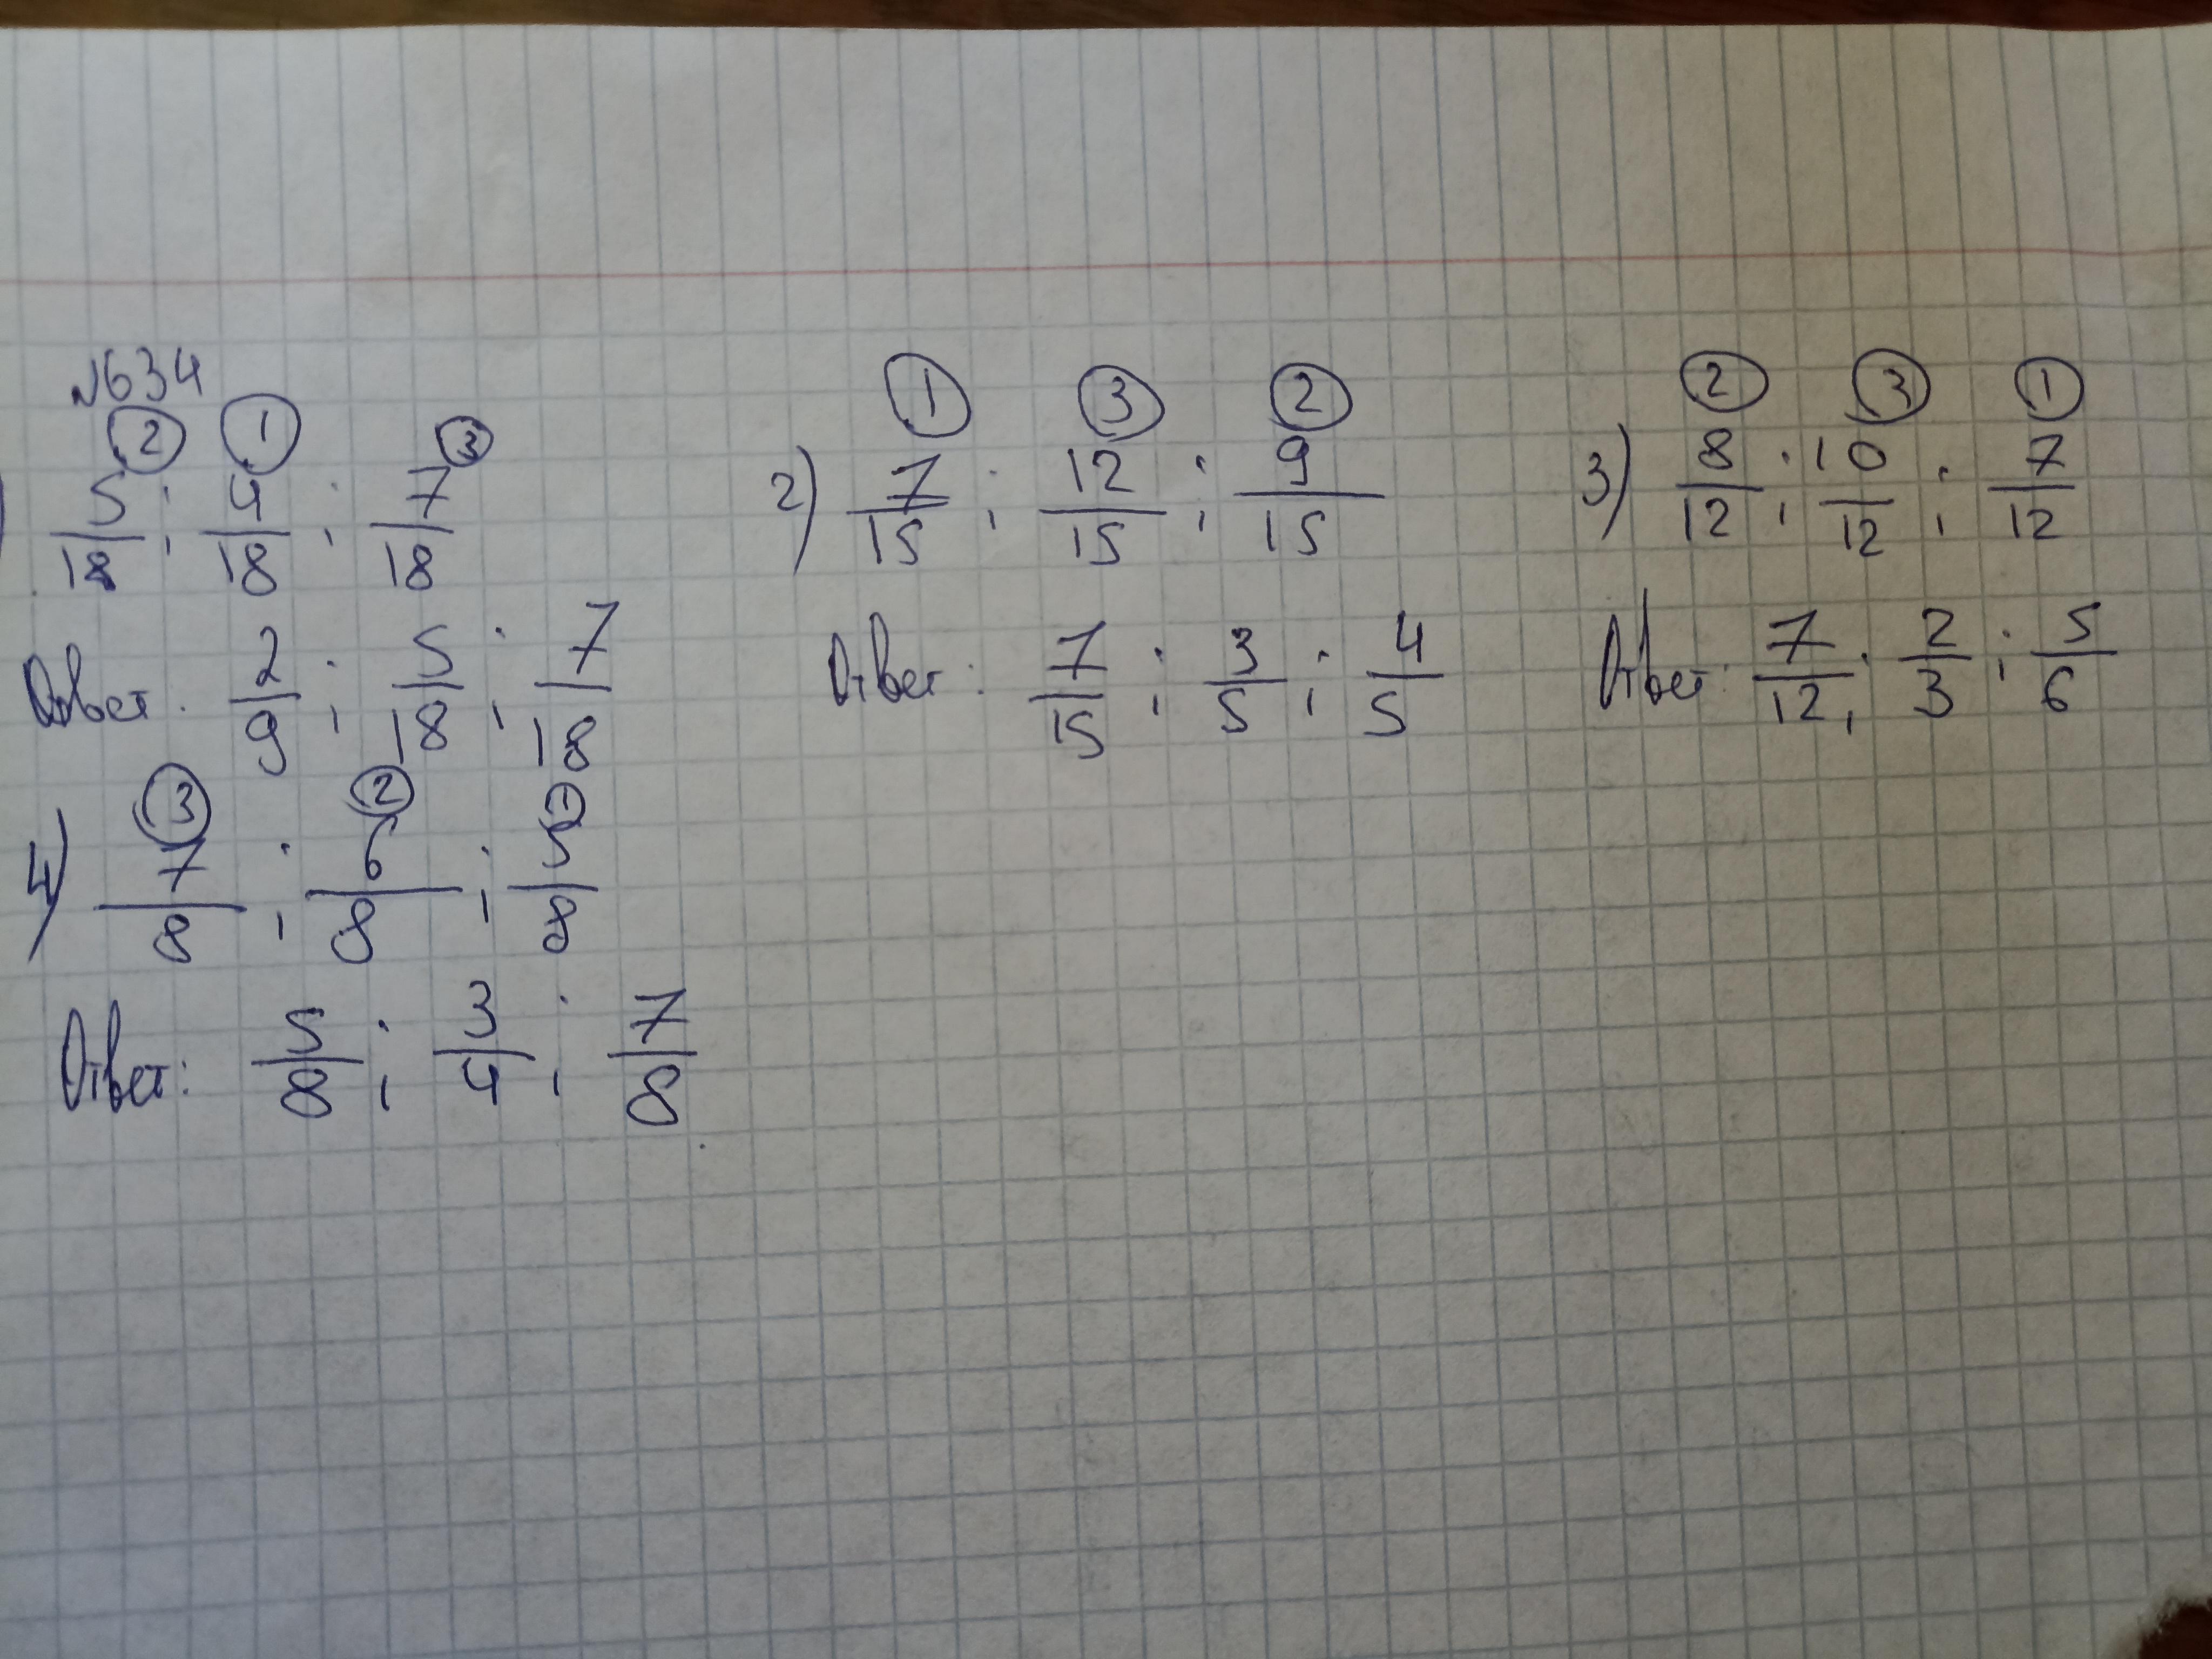 №634
② ① ③
) 5/18 ; 4/18 ; 7/18
Ответ: 2/9 ; 5/18 ; 7/18
① ③ ②
2) 7/15 ; 12/15 ; 9/15
Ответ: 7/15 ; 3/5 ; 4/5
② ③ ①
3) 8/12 ; 10/12 ; 7/12
Ответ: 7/12 ; 2/3 ; 5/6
③ ②
4) 7/8 ; 6/8 ; 5/8
Ответ: 5/8 ; 3/4 ; 7/8